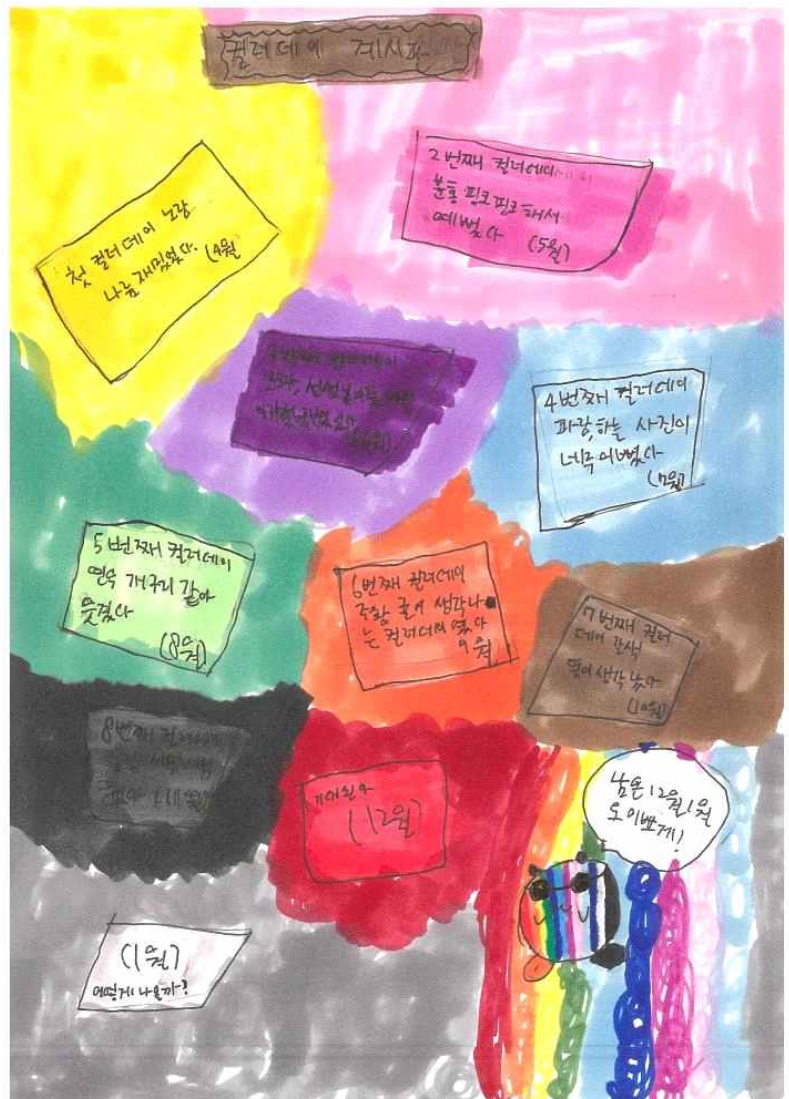 컬러데이 게시판
첫 컬러데이 노랑
나름 재밌었다. (4월
2번째 컬러데이
분홍 핑크핑크해서
예뻤다 (5월)
3번째 컬러데이
보라, 선생님
4번째 컬러데이
파랑, 하늘 사진이
너무 이뻤다
(7월)
5번째 컬러데이
연두 개구리 같아
웃겼다
(8월)
6번째 컬러데이
주황 귤이 생각나
는 컬러데이였다
9월
7번째 컬러
데이 갈색
생각 났다
(10월)
8번째 컬러데이
기대된다
(12월)
남은 12월 1월
도 이쁘게!
(1월)
어떻게 나올까?